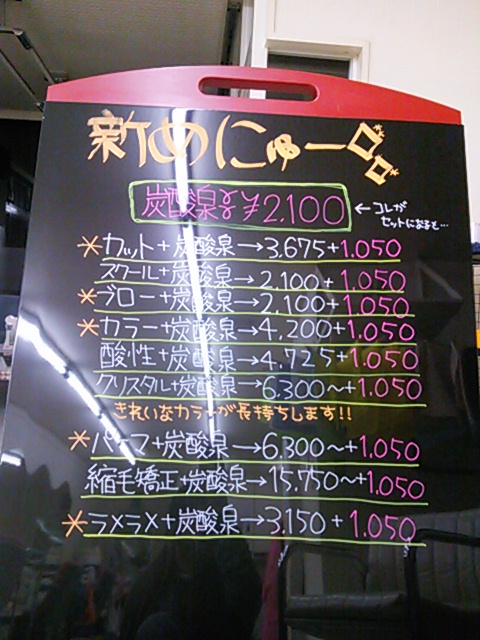 新めにゅー!!
炭酸泉 ¥2.100
←コレが
セットになると…
*カット+炭酸泉→3.675+1.050
スクール+炭酸泉→2.100+1.050
*ブロー+炭酸泉→2,100+1.050
*カラー+炭酸泉→4,200+1.050
酸性+炭酸泉→4.725+1.050
クリスタル+炭酸泉→6.300〜+1.050
きれいなカラーが長持ちします!!
*パーマ+炭酸泉→6.300〜+1.050
縮毛矯正+炭酸泉→15.750〜+1.050
*ラメラメ+炭酸泉→3.150+1.050